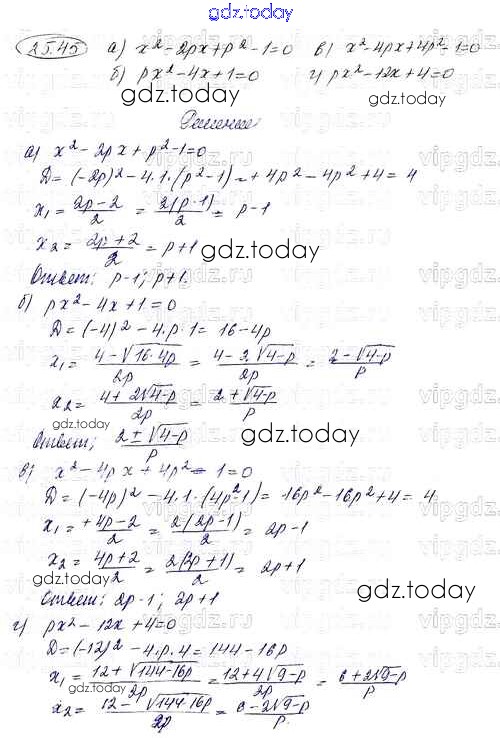 gdz.today
25.45 а) x² - 2px + p² - 1 = 0 в) x² - 4px + 4p² - 1 = 0
б) px² - 4x + 1 = 0 г) px² - 12x + 4 = 0
gdz.today gdz.today
Решение
а) x² - 2px + p² - 1 = 0
D = (-2p)² - 4·1·(p² - 1) = + 4p² - 4p² + 4 = 4
x₁ = (2p - 2)/2 = 2(p - 1)/2 = p - 1
x₂ = (2p + 2)/2 = p + 1
gdz.today
Ответ: p - 1; p + 1.
б) px² - 4x + 1 = 0
D = (-4)² - 4·p·1 = 16 - 4p
x₁ = (4 - √(16-4p))/2p = (4 - 2√(4-p))/2p = (2 - √(4-p))/p
x₂ = (4 + 2√(4-p))/2p = (2 + √(4-p))/p
gdz.today
Ответ: (2 ± √(4-p))/p
gdz.today
в) x² - 4px + 4p² - 1 = 0
D = (-4p)² - 4·1·(4p² - 1) = 16p² - 16p² + 4 = 4
x₁ = (+4p - 2)/2 = 2(2p - 1)/2 = 2p - 1
x₂ = (4p + 2)/2 = 2(2p + 1)/2 = 2p + 1
gdz.today
gdz.today
Ответ: 2p - 1; 2p + 1
г) px² - 12x + 4 = 0
D = (-12)² - 4·p·4 = 144 - 16p
x₁ = (12 + √(144-16p))/2p = (12 + 4√(9-p))/2p = (6 + 2√(9-p))/p
gdz.today
x₂ = (12 - √(144-16p))/2p = (6 - 2√(9-p))/p